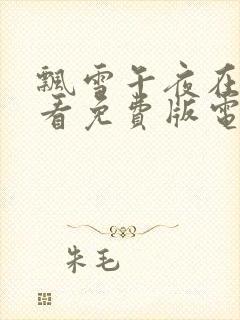 飘雪午夜在
看免費版電
朱毛